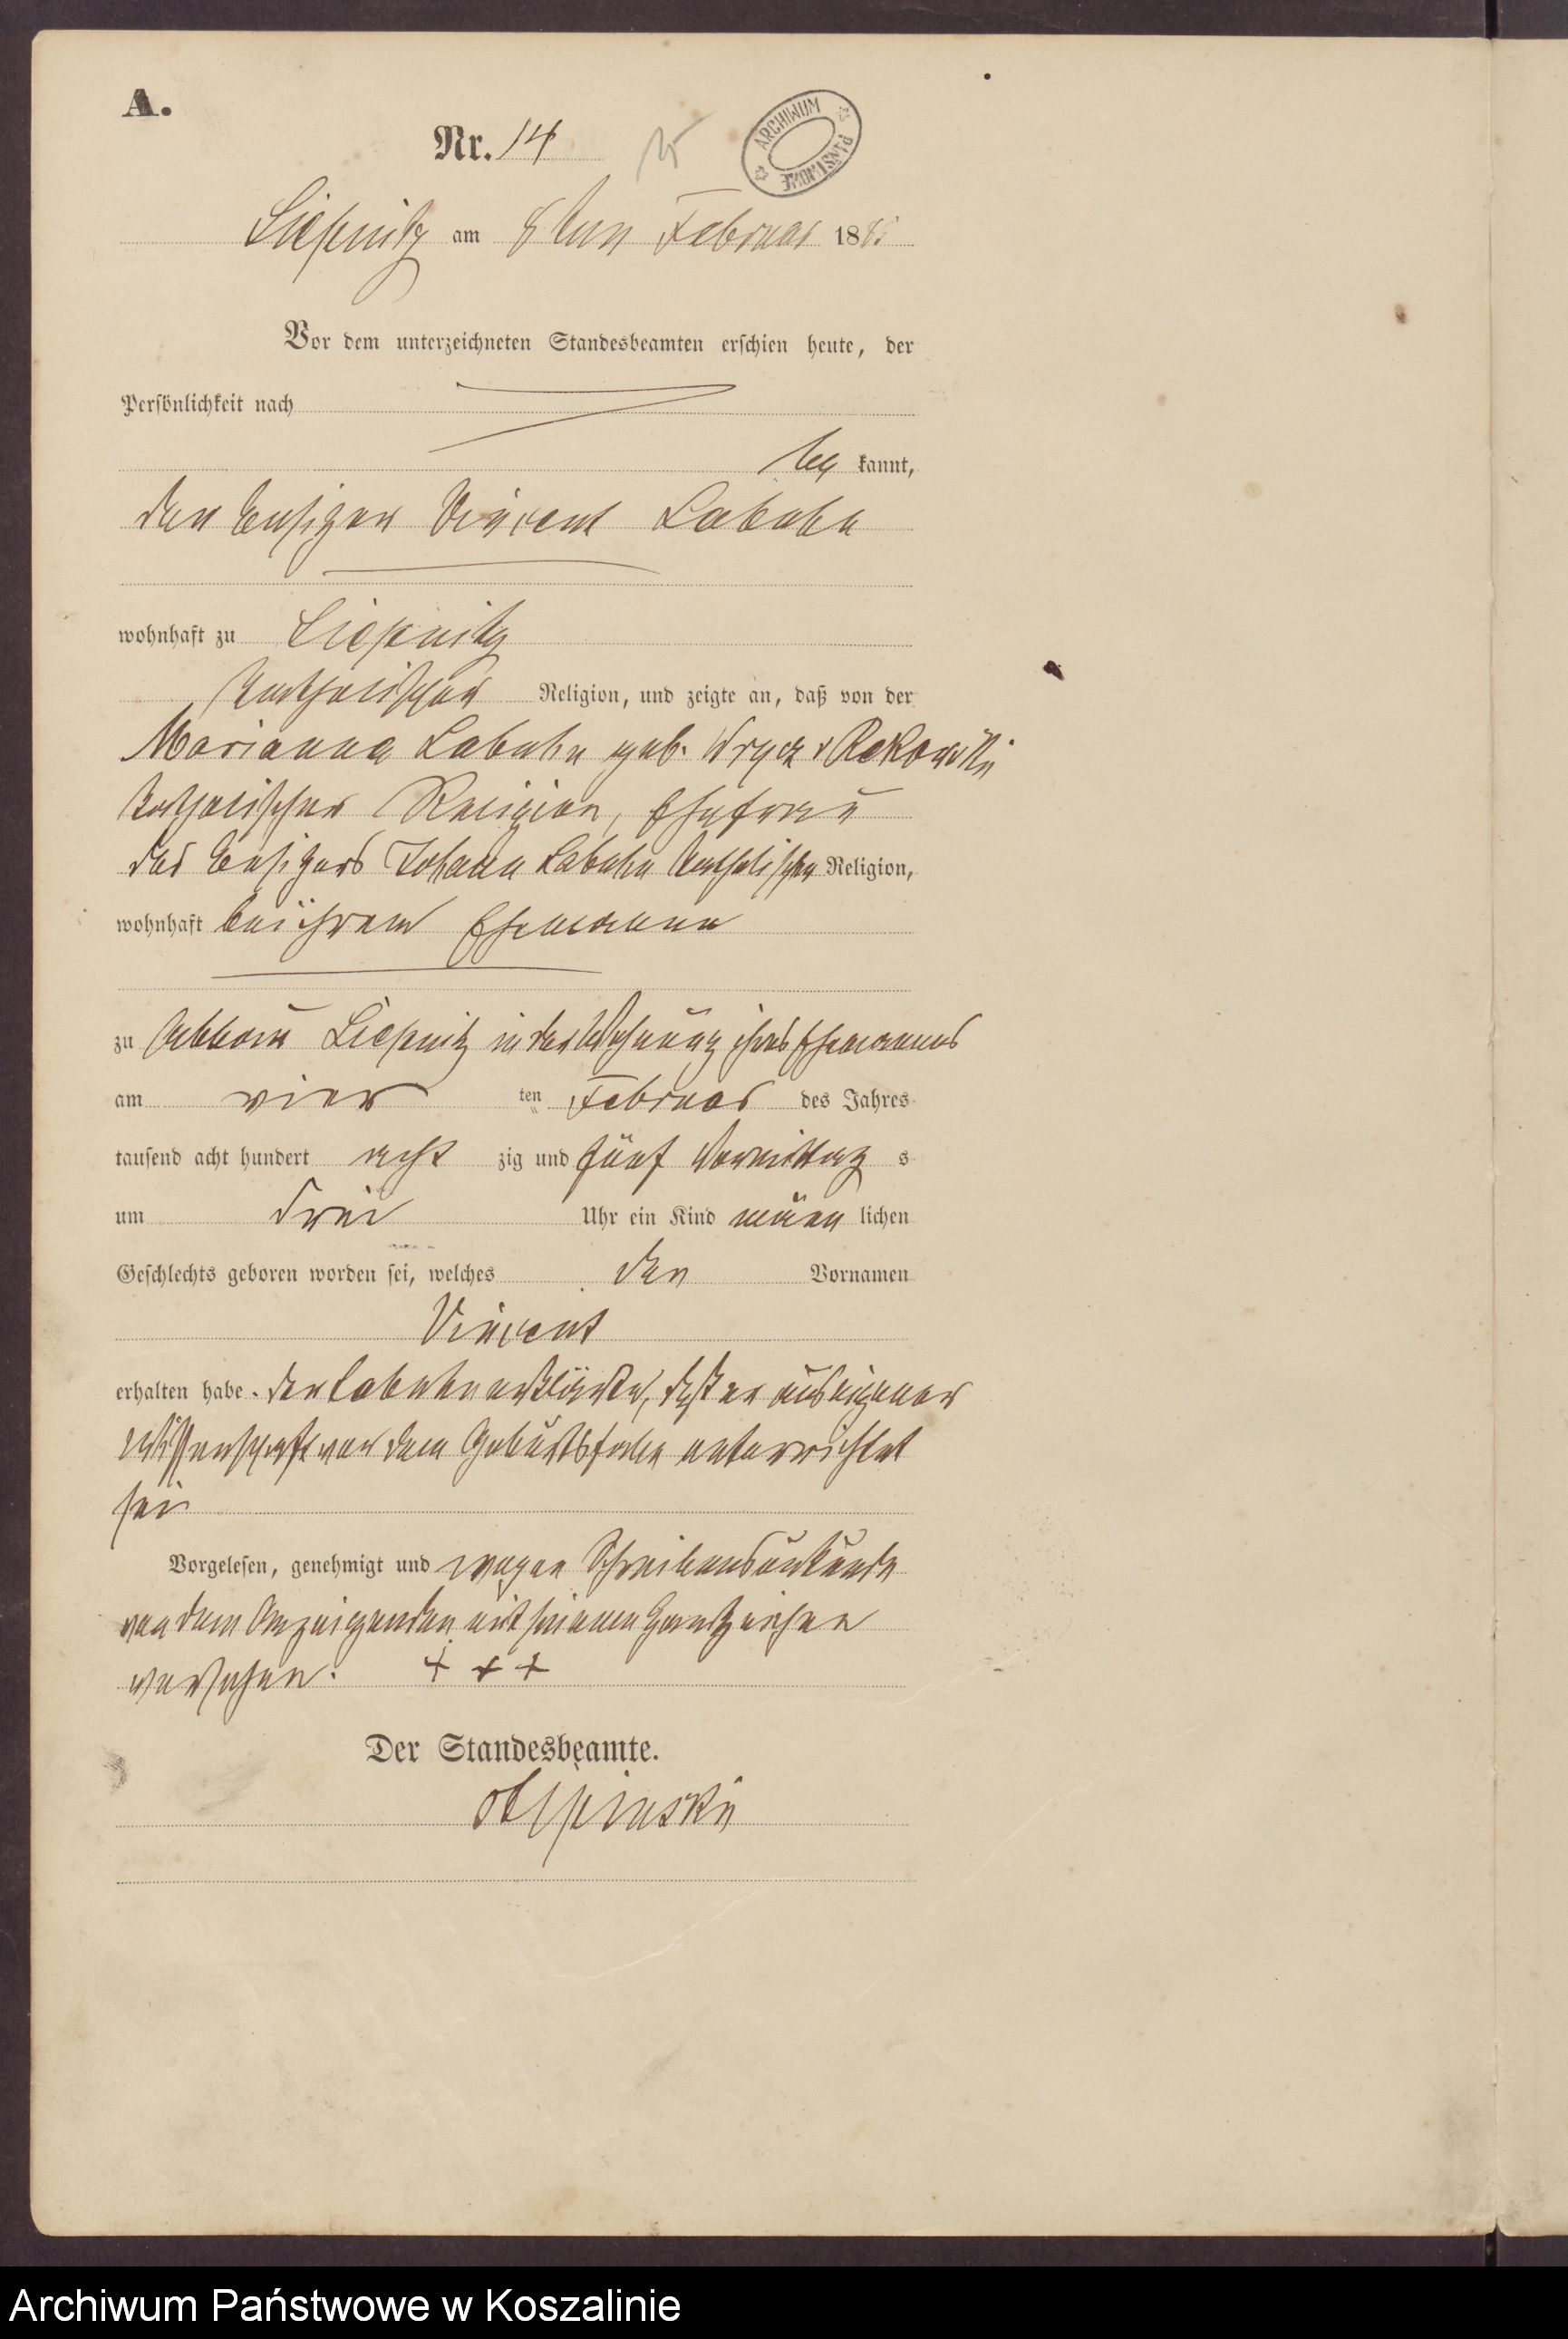 A.
Nr. 14
15
ARCHIWUM PAŃSTWOWE
Liepnitz am 8ten Februar 1885
Vor dem unterzeichneten Standesbeamten erschien heute, der
Persönlichkeit nach
be kannt,
der Besitzer Vincent Labuhn
wohnhaft zu Liepnitz
katholischer Religion, und zeigte an, daß von der
Marianna Labuhn geb. Wrycz v Rekowski
katholischer Religion, Ehefrau
des Besitzers Johann Labuhn katholischer Religion,
wohnhaft bei ihrem Ehemanne
zu Abbau Liepnitz in der Wohnung ihres Ehemannes
am vier ten Februar des Jahres
tausend acht hundert acht zig und fünf Vormittag s
um drei Uhr ein Kind männ lichen
Geschlechts geboren worden sei, welches den Vornamen
Vincent
erhalten habe. Der Labuhn erklärte, daß er aus eigener
Wissenschaft von dem Geburtsfalle unterrichtet
sei
Vorgelesen, genehmigt und wegen Schreibensunkunde
von dem Anzeigenden mit seinem Handzeichen
versehen. + + +
Der Standesbeamte.
Archiwum Państwowe w Koszalinie